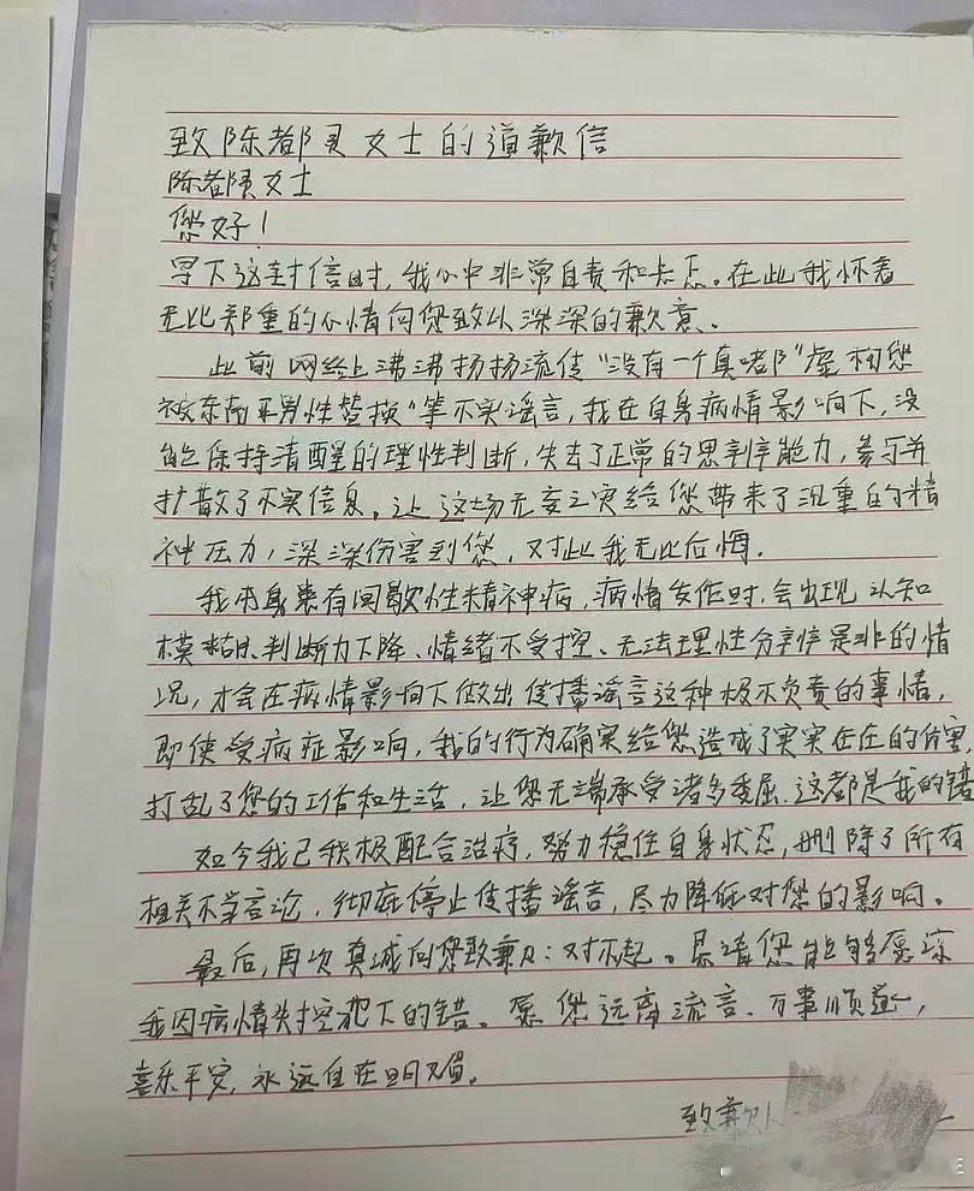 致陈都灵女士的道歉信
陈都灵女士
您好!
写下这封信时,我心中非常自责和忐忑。在此我怀着
无比郑重的心情向您致以深深的歉意。
此前网络上沸沸扬扬流传“没有一个真啫阝”虚构您
被东南亚男性替换“等不实谣言,我在自身病情影响下,没
能保持清醒的理性判断,失去了正常的思辨能力,参与并
扩散了不实信息。让这场无妄之灾给您带来了沉重的精
神压力,深深伤害到您,对此我无比后悔.
我本身患有间歇性精神病,病情发作时.会出现认知
模糊、判断力下降、情绪不受控、无法理性分辨是非的情
况,才会在病情影响下做出传播谣言这种极不负责的事情,
即使受病症影响,我的行为确实给您造成了实实在在的伤害,
打乱了您的工作和生活,让您无端承受诸多委屈.这都是我的错
如今我已积极配合治疗,努力稳住自身状态,删除了所有
相关不当言论,彻底停止传播谣言,尽力降低对您的影响。
最后,再次真诚向您致歉:对不起。恳请您能够原谅
我因病情失控犯下的错。愿您远离流言、万事顺遂,
喜乐平安,永远自在明媚。
致歉人